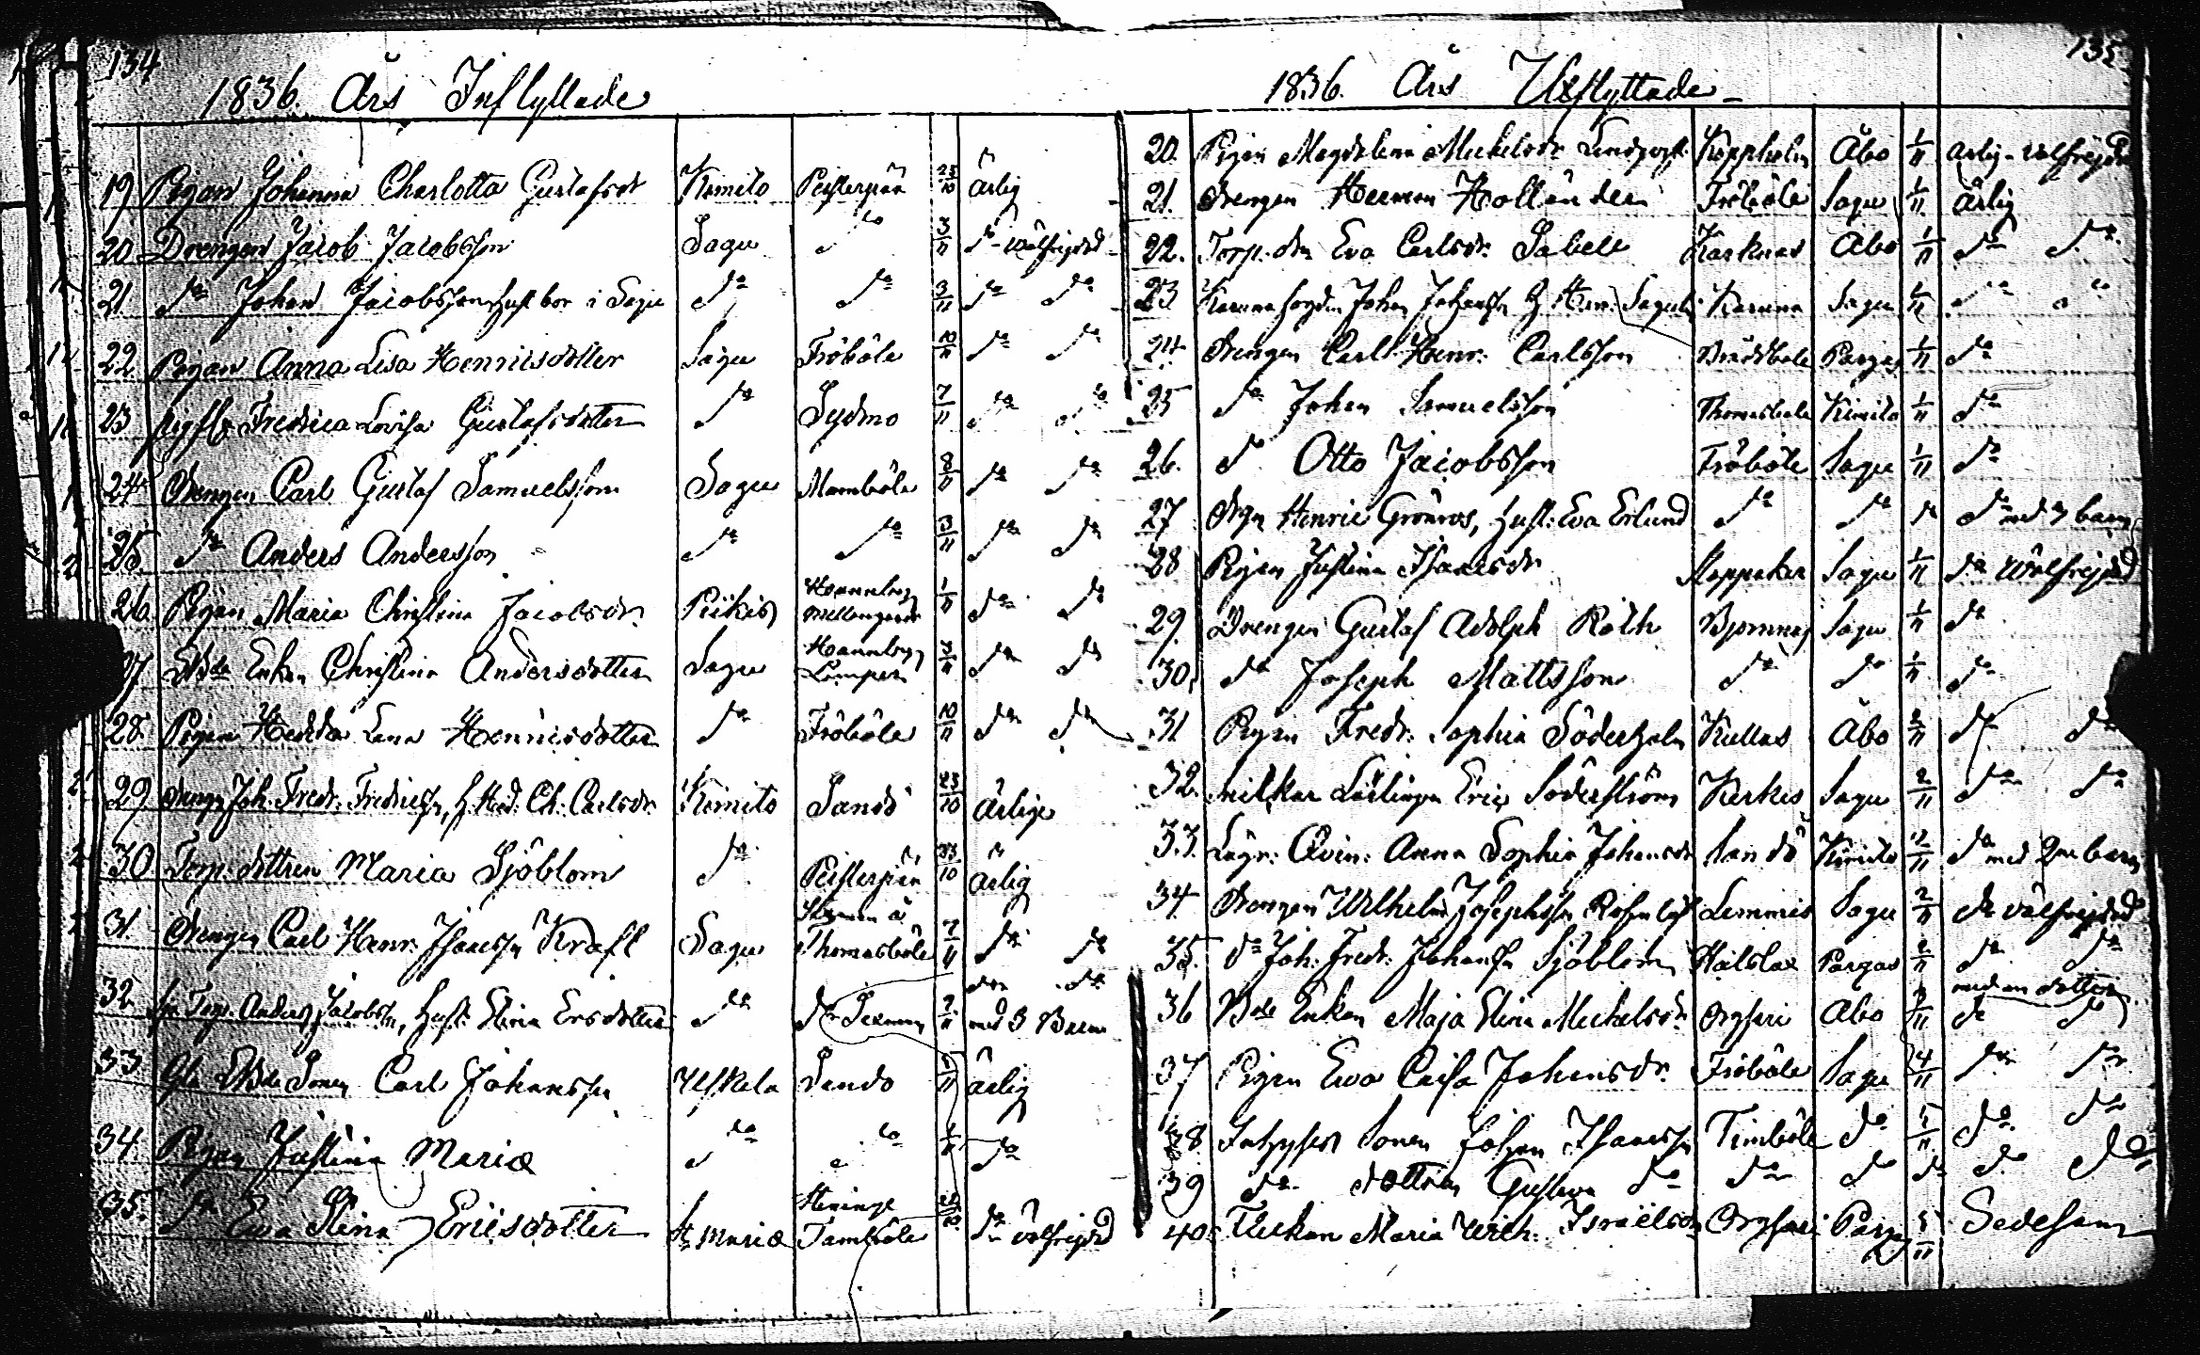 134
1836. Års Inflyttade
19 Pigan Johanna Charlotta Gustafsdr Kimito Peisterpää 23/10 Ärlig
20 Drengen Jacob Jacobsson Sagu do 3/11 do wälfrejdad
21 do Johan Jacobsson, Hust bor i Sagu do do 3/11 do do
22 Pigan Anna Lisa Henricsdotter Sagu Fröböle 10/11 do do
23 Fredrica Lovisa Gustafsdotter do Sydmo 7/11 do do
24 Drengen Carl Gustaf Samuelsson Sagu Mamböle 8/11 do do
25 do Anders Andersson do do 3/11 do do
26 Pigan Maria Christina Jacobsdr Piikis Mellangård 1/11 do do
27 Enkan Christina Andersdotter Sagu Lemper 3/11 do do
28 Pigan Hedda Lena Henricsdotter do Fröböle 10/11 do do
29 Drengn Joh. Fredr. Fredricss, H. Hed. Ch. Carlsdr Kimito Sandö 23/10 Ärlige
30 Torp. dottren Maria Sjöblom do Peisterpää 23/10 Ärlig
31. Drengen Carl Henr. Isaacssn Kraft Sagu Thomasböle 7/11 do do
32 Torp. Anders Jacobsn, Hust. Stina Ersdotter do do 7/11 do do med 3 Barn
33 Sonen Carl Johansson Uskela Sandö 11 Ärlig
34. Pigan Justina Maria do do 11 do
35. do Ewa Stina Ericsdotter St Mariæ Heninge Tamböle do wälfrejdad
135
1836. Års Utflyttade
20. Pigan Magdalena Michelsdr Lindqvist Koppholm Åbo 1/11 ärlig wälfrejdad
21. Drengen Herman Hollander Fröböle Sagu 1/11 Ärlig
22. Torp. drn Eva Carlsdr. Sabell Karknas Åbo 1/11 do do
23 Johan Johansson H. Karuna Sagu 1/11 do do
24. Drengen Carl Henr. Carlsson Bräddbole Pargas 1/11 do
25 do Johan Samuelsson Thomasböle Kimito 1/11 do
26. do Otto Jacobsson Fröböle Sagu 1/11 do
27 Drgn Henric Grönros, Hust: Eva Erlund do do do do med barn
28 Pigan Justina Isaacsdr Sagu 1/11 do wälfrejdad
29. Drengen Gustaf Adolph Roth Bjornnäs Sagu 1/11 do
30. do Joseph Mattsson do do 1/11 do
31 Pigan Fredr. Sophia Söderholm Kullas Åbo 2/11 do do
32. Lärlingen Eric Söderström Kerkis Sagu 2/11 do do
33. Qvin. Anna Sophia Johansdr Sandö Kimito 2/11 do med 2ne barn
34 Drengen Wilhelm Josephssn Lemmis Sagu 2/11 do wälfrejdad
35. do Joh. Fredr. Johanssn Sjöblom Halslax Pargas 2/11 do do
36 Enkan Maja Stina Michelsdr Åbo 3/11 med en dotter do do
37 Pigan Ewa Caisa Johansdr. Fröböle Sagu 4/11 do do
38 Inhyses Sonen Johan Isaacssn Timböle do 5/11 do do
39 do dottren Gustava do do do do do do
40. Flickan Maria Ulrik. Israelsdr Pargas 5/11 Sedesam